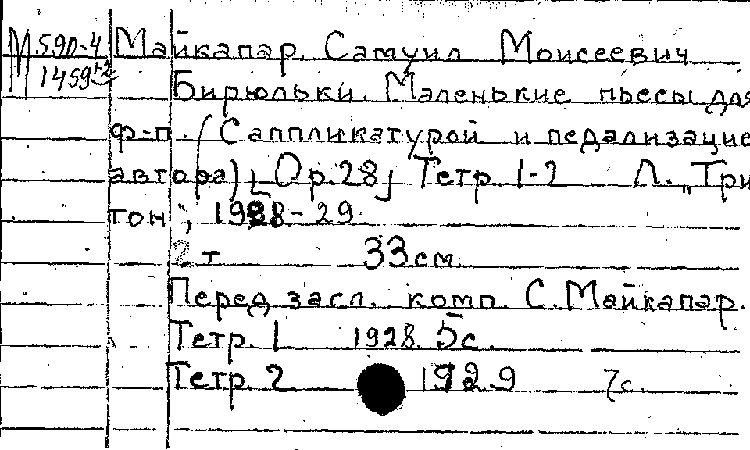 М 590-4 Майкапар, Самуил Моисеевич
1459
Бирюльки. Маленькие пьесы для
ф-п. (С аппликатурой и педализацией
автора) [Ор. 28] Тетр 1-2 Л. "Три
тон", 1928-29.
2 т 33 см.
Перед засл. комп. С. Майкапар.
Тетр. 1 1928. 5с.
Тетр. 2 1929 7с.